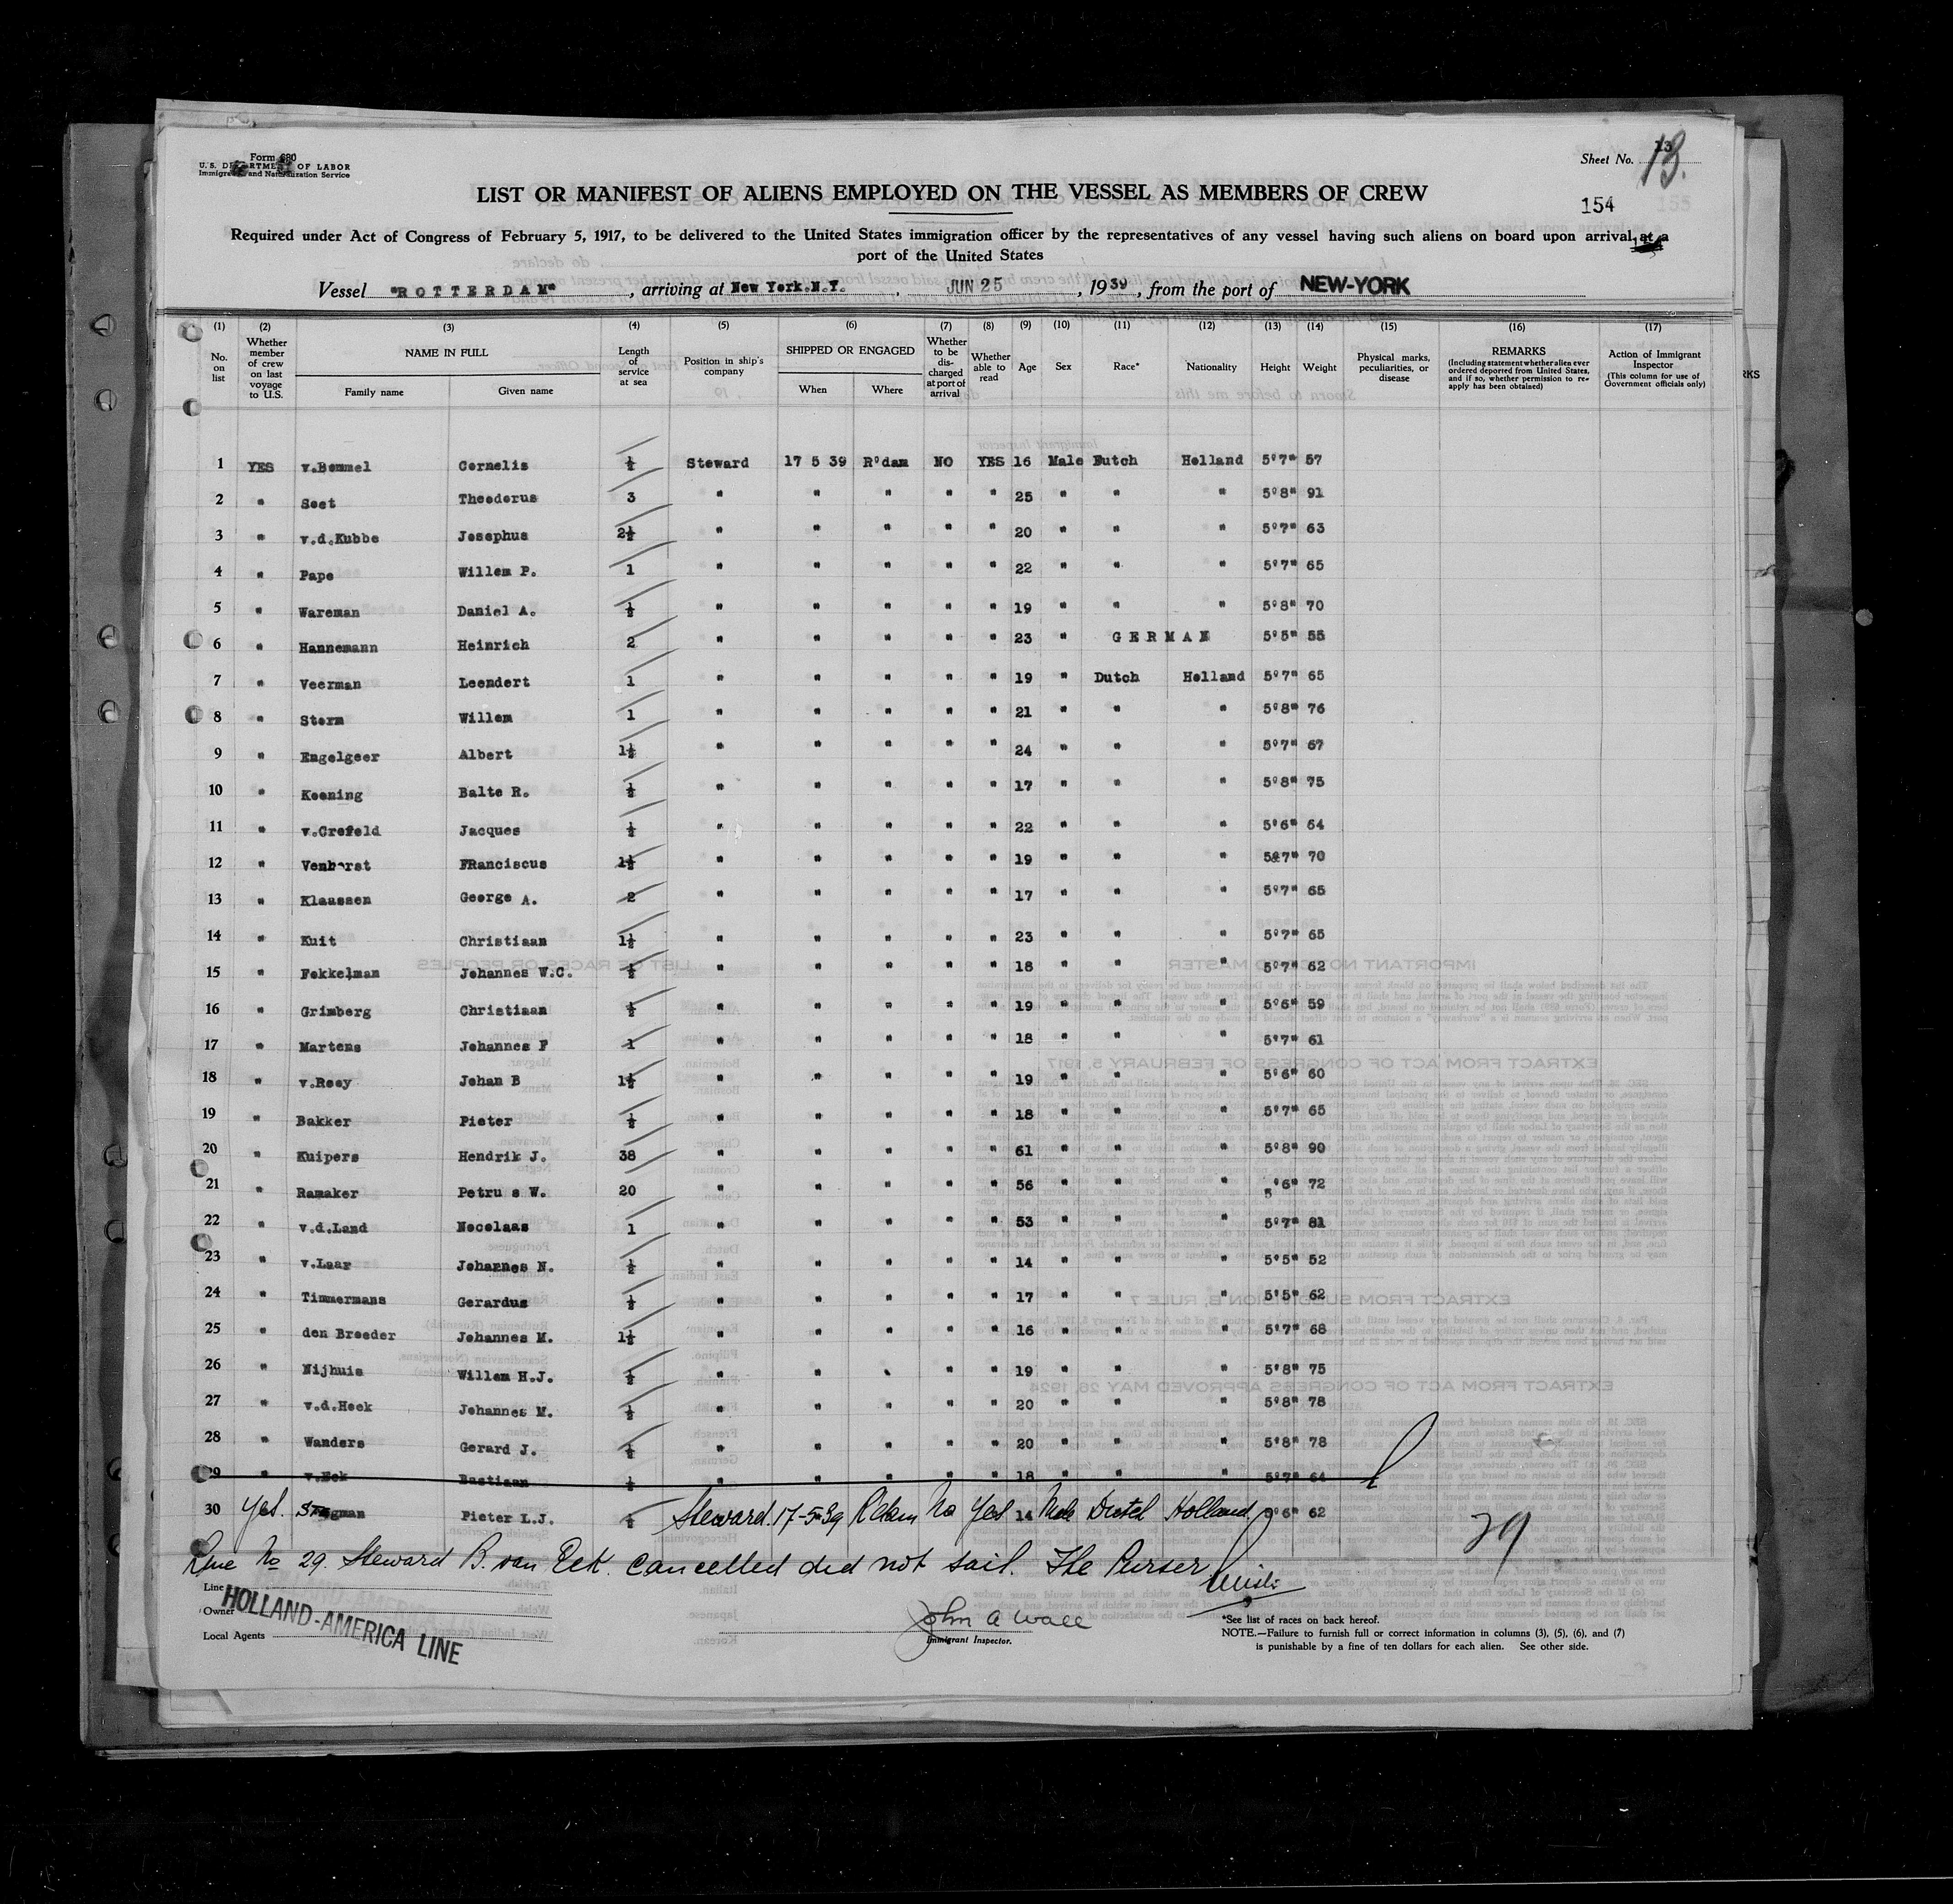 Form 680
U. S. DEPARTMENT OF LABOR
Immigration and Naturalization Service
Sheet No. 13
13.
LIST OR MANIFEST OF ALIENS EMPLOYED ON THE VESSEL AS MEMBERS OF CREW
154
Required under Act of Congress of February 5, 1917, to be delivered to the United States immigration officer by the representatives of any vessel having such aliens on board upon arrival at a
port of the United States
Vessel "ROTTERDAM", arriving at New York.N.Y., JUN 25, 1939, from the port of NEW-YORK
(1) (2) (3) (4) (5) (6) (7) (8) (9) (10) (11) (12) (13) (14) (15) (16) (17)
No. on list
Whether member of crew on last voyage to U.S.
NAME IN FULL
Family name
Given name
Length of service at sea
Position in ship's company
SHIPPED OR ENGAGED
When
Where
Whether to be discharged at port of arrival
Whether able to read
Age
Sex
Race*
Nationality
Height
Weight
Physical marks, peculiarities, or disease
REMARKS
(Including statement whether alien ever ordered deported from United States, and if so, whether permission to reapply has been obtained)
Action of Immigrant Inspector
(This column for use of Government officials only)
1 YES v.Bemmel Cornelis ½ Steward 17 5 39 R'dam NO YES 16 Male Dutch Holland 5'7" 57
2 " Soet Theodorus 3 " " " " " 25 " " " 5'8" 91
3 " v.d.Kubbe Josephus 2½ " " " " " 20 " " " 5'7" 63
4 " Pape Willem P. 1 " " " " " 22 " " " 5'7" 65
5 " Wareman Daniel A. ½ " " " " " 19 " " " 5'8" 70
6 " Hannemann Heinrich 2 " " " " " 23 " GERMAN 5'5" 55
7 " Veerman Leendert 1 " " " " " 19 " Dutch Holland 5'7" 65
8 " Storm Willem 1 " " " " " 21 " " " 5'8" 76
9 " Engelgeer Albert 1½ " " " " " 24 " " " 5'7" 67
10 " Koening Balte R. ½ " " " " " 17 " " " 5'8" 75
11 " v.Crefeld Jacques ½ " " " " " 22 " " " 5'6" 64
12 " Venhorst FRanciscus 1½ " " " " " 19 " " " 5'7" 70
13 " Klaassen George A. 2 " " " " " 17 " " " 5'7" 65
14 " Kuit Christiaan 1½ " " " " " 23 " " " 5'7" 65
15 " Fokkelman Johannes W.C. ½ " " " " " 18 " " " 5'7" 62
16 " Grimberg Christiaan ½ " " " " " 19 " " " 5'6" 59
17 " Martens Johannes F 1 " " " " " 18 " " " 5'7" 61
18 " v.Rooy Johan B 1½ " " " " " 19 " " " 5'6" 60
19 " Bakker Pieter ½ " " " " " 18 " " " 5'7" 65
20 " Kuipers Hendrik J. 38 " " " " " 61 " " " 5'8" 90
21 " Ramaker Petru s W. 20 " " " " " 56 " " " 5'6" 72
22 " v.d.Land Nocolaas 1 " " " " " 53 " " " 5'7" 81
23 " v.Laar Johannes N. ½ " " " " " 14 " " " 5'5" 52
24 " Timmermans Gerardus ½ " " " " " 17 " " " 5'5" 62
25 " den Breeder Johannes M. 1½ " " " " " 16 " " " 5'7" 68
26 " Nijhuis Willem H.J. ½ " " " " " 19 " " " 5'8" 75
27 " v.d.Hoek Johannes M. ½ " " " " " 20 " " " 5'8" 78
28 " Wanders Gerard J. ½ " " " " " 20 " " " 5'8" 78
29 " v.Nek Bastiaan ½ " " " " " 18 " " " 5'7" 64
30 Yes. Pieter L.J. ½ Steward. 17-5-39 Rdam No Yes 14 Male Dutch Holland 5'6" 62
29
Line No 29. Steward B. van Eek. cancelled did not sail. The Purser
Line
Owner
Local Agents
HOLLAND-AMERICA LINE
John A Wall
Immigrant Inspector.
*See list of races on back hereof.
NOTE.—Failure to furnish full or correct information in columns (3), (5), (6), and (7)
is punishable by a fine of ten dollars for each alien. See other side.